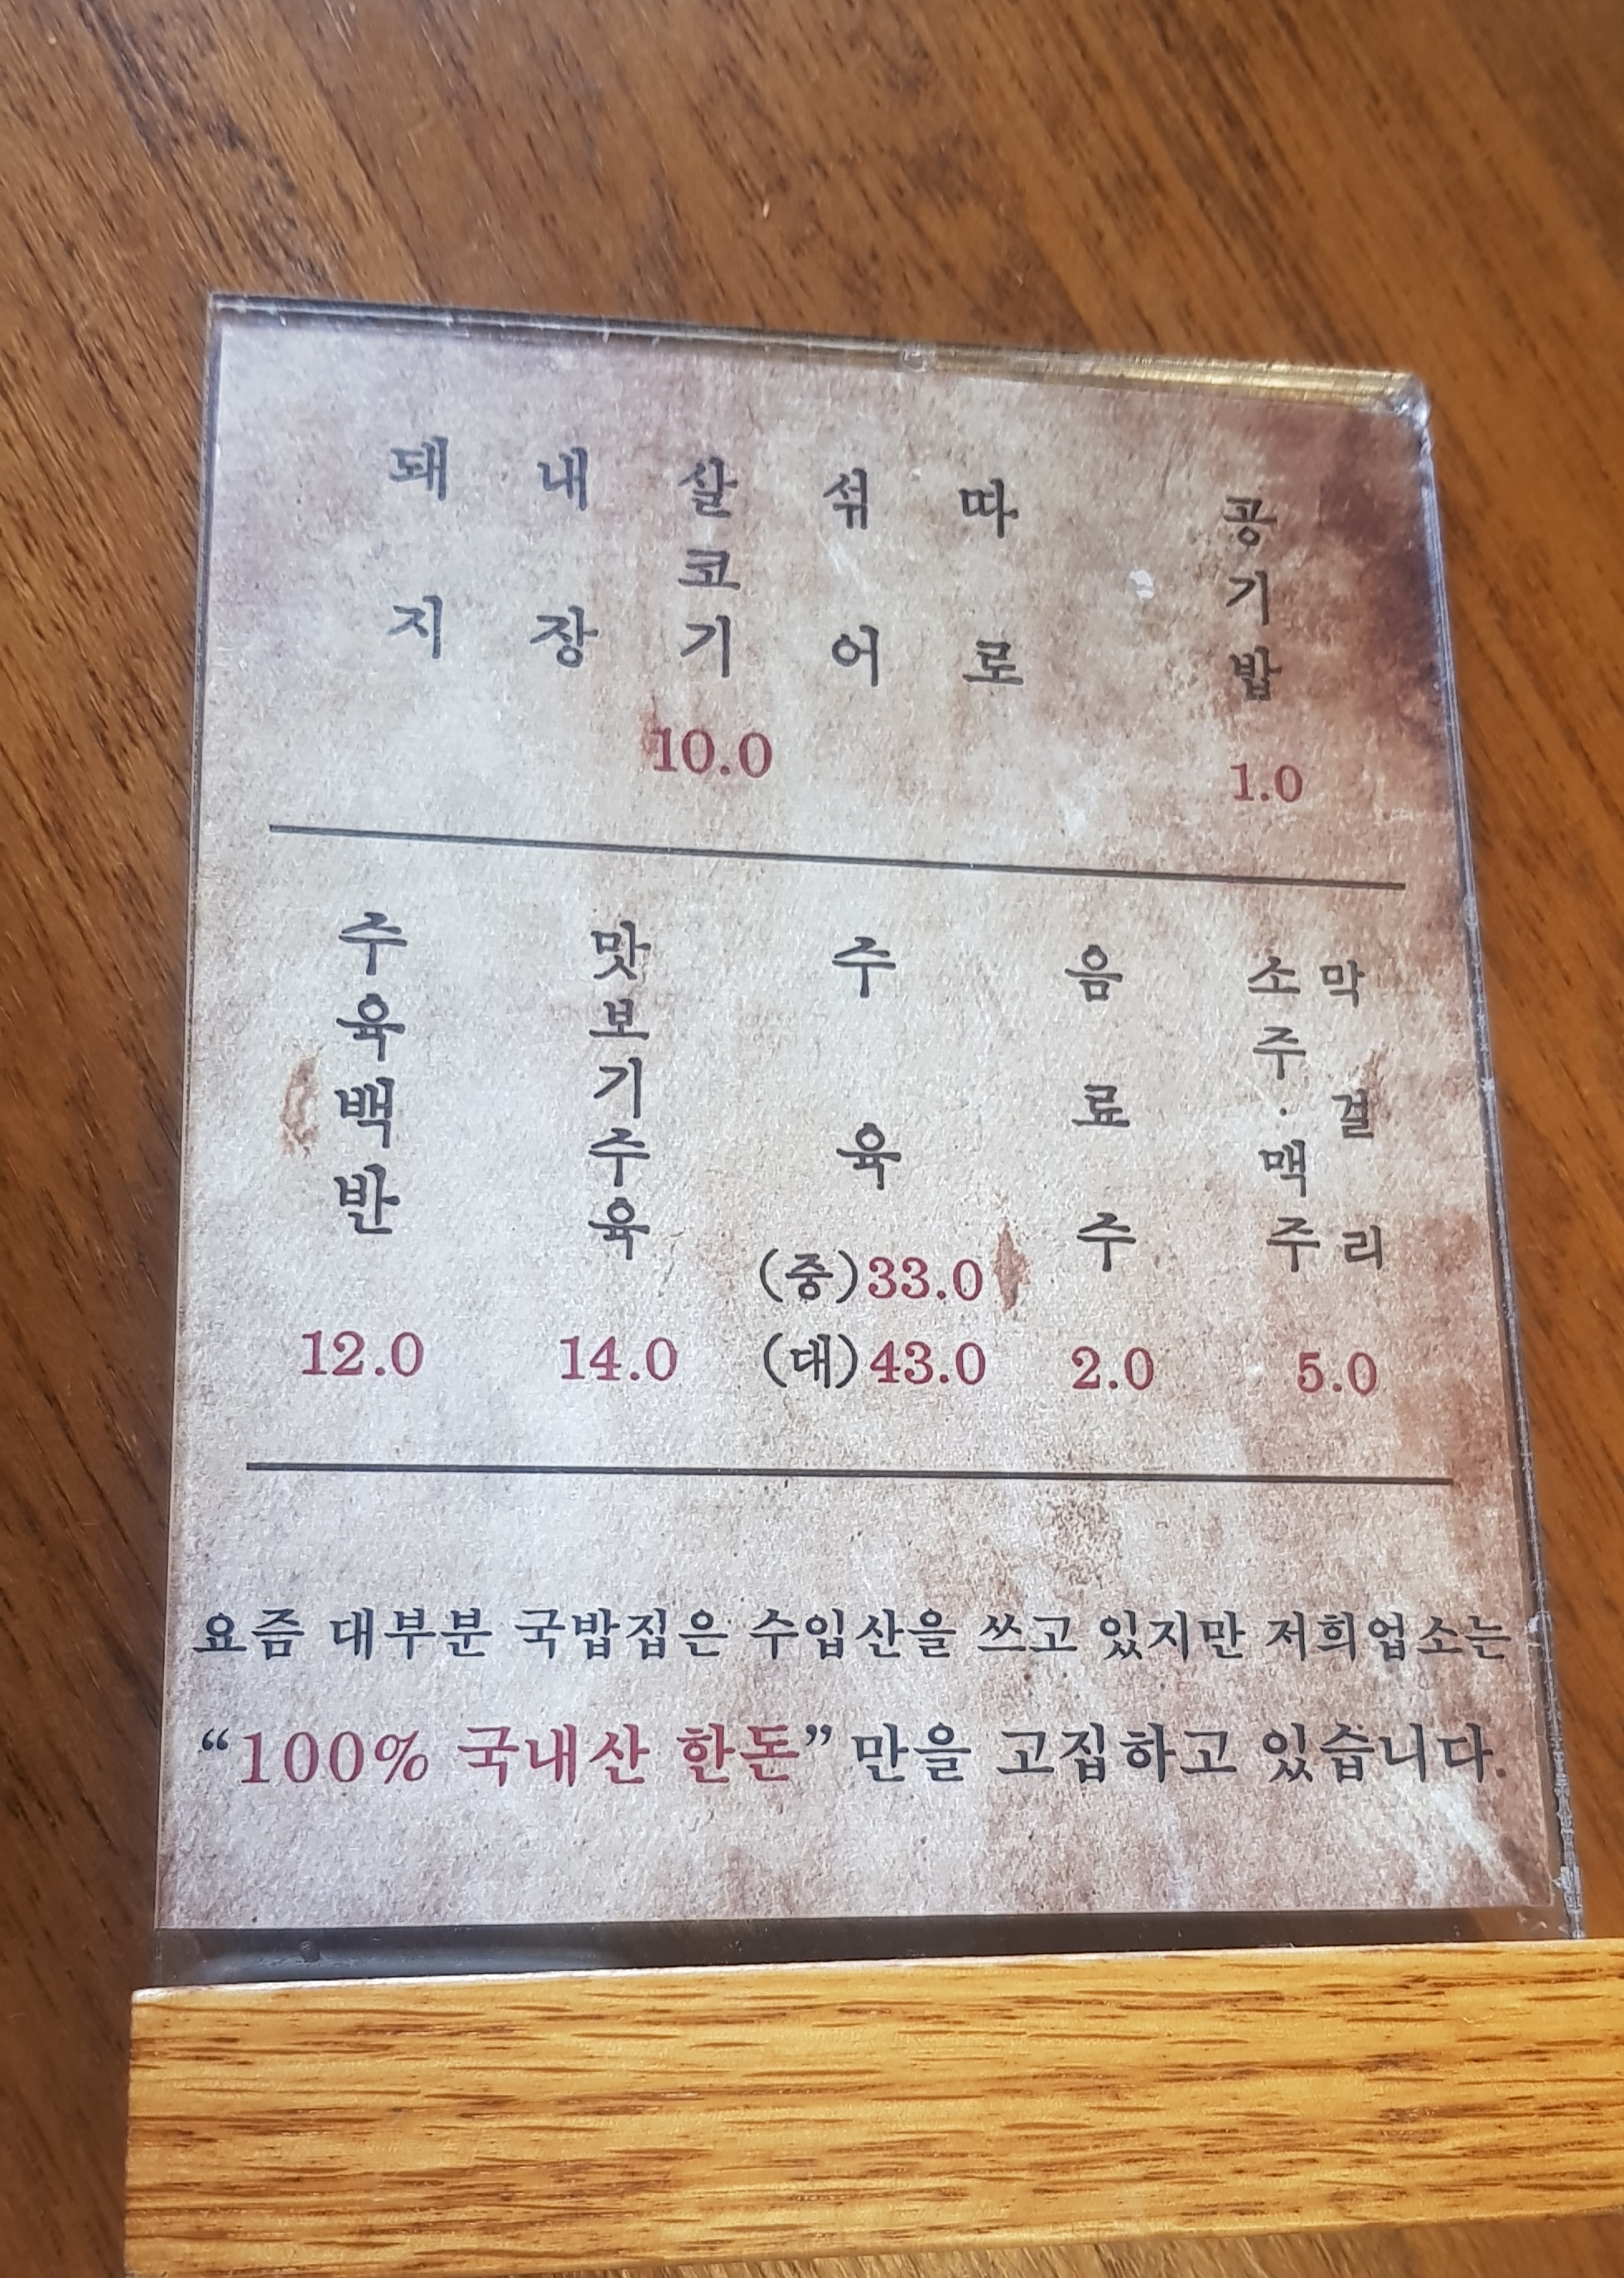 돼지
내장
살코기
섞어
따로
10.0
공기밥
1.0
수육백반
12.0
맛보기수육
14.0
수육
(중)33.0
(대)43.0
음료수
2.0
소주·맥주
막걸리
5.0
요즘 대부분 국밥집은 수입산을 쓰고 있지만 저희업소는
“100% 국내산 한돈”만을 고집하고 있습니다.